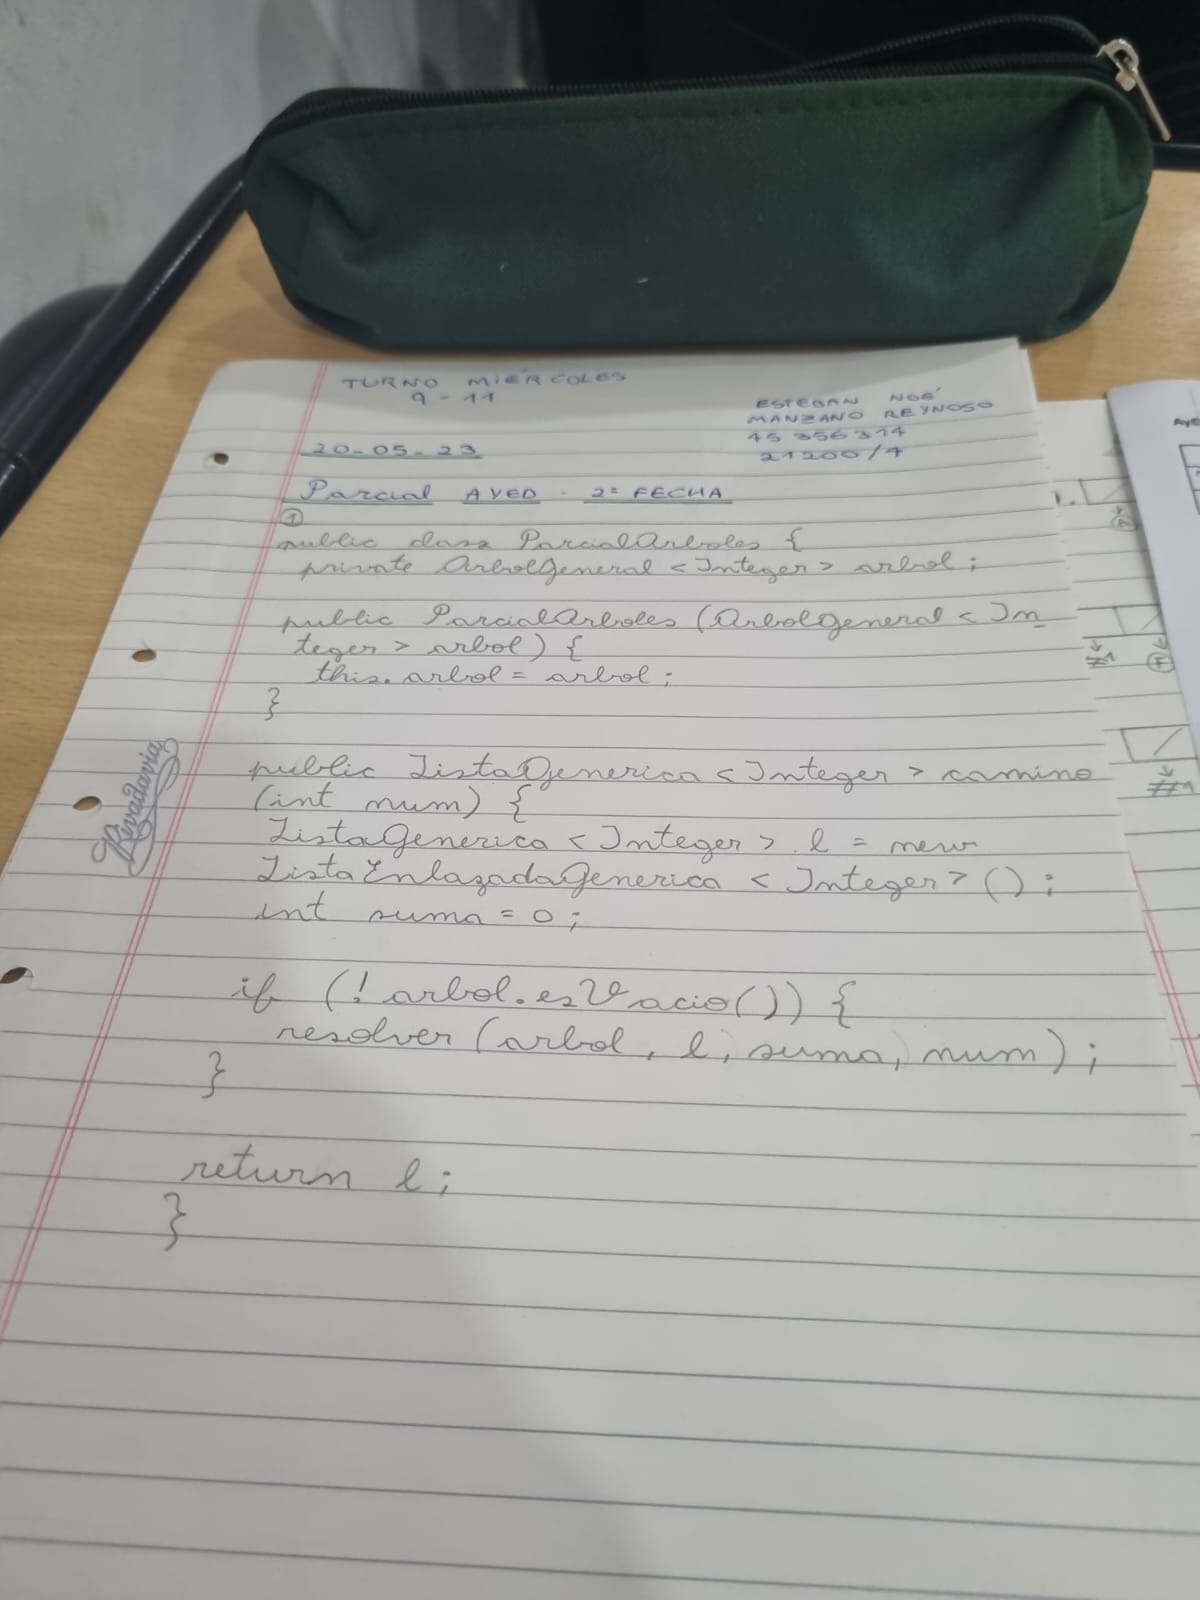 TURNO MIÉRCOLES
9 - 11
ESTEBAN NOÉ
MANZANO REYNOSO
45 356 314
21200/4
20-05-23
Parcial AYED - 2ª FECHA
①
public class ParcialArboles {
private ArbolGeneral <Integer> arbol;
public ParcialArboles (ArbolGeneral <In
teger> arbol) {
this.arbol = arbol;
}
public ListaGenerica <Integer> camino
(int num) {
ListaGenerica <Integer> l = new
ListaEnlazadaGenerica <Integer> ();
int suma = 0;
if (! arbol.esVacio()) {
resolver (arbol, l, suma, num);
}
return l;
}
Rivadavia